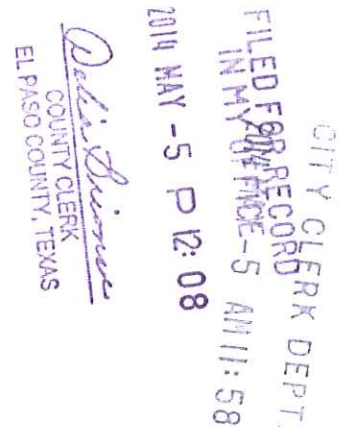 CITY CLERK DEPT.
2014 MAY -5 AM 11:58
FILED FOR RECORD
IN MY OFFICE
2014 MAY -5 P 12:08
Delia Briones
COUNTY CLERK
EL PASO COUNTY, TEXAS